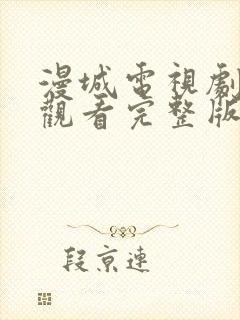 漫城電視劇
觀看完整版
段京連